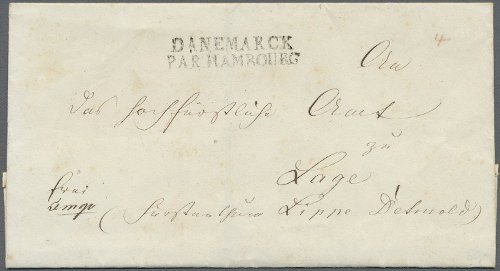 DANEMARCK
PAR HAMBOURG
4
An
das hochfürstliche Amt
zu
Lage
frei
Lemgo
(Fürstenthum Lippe Detmold)